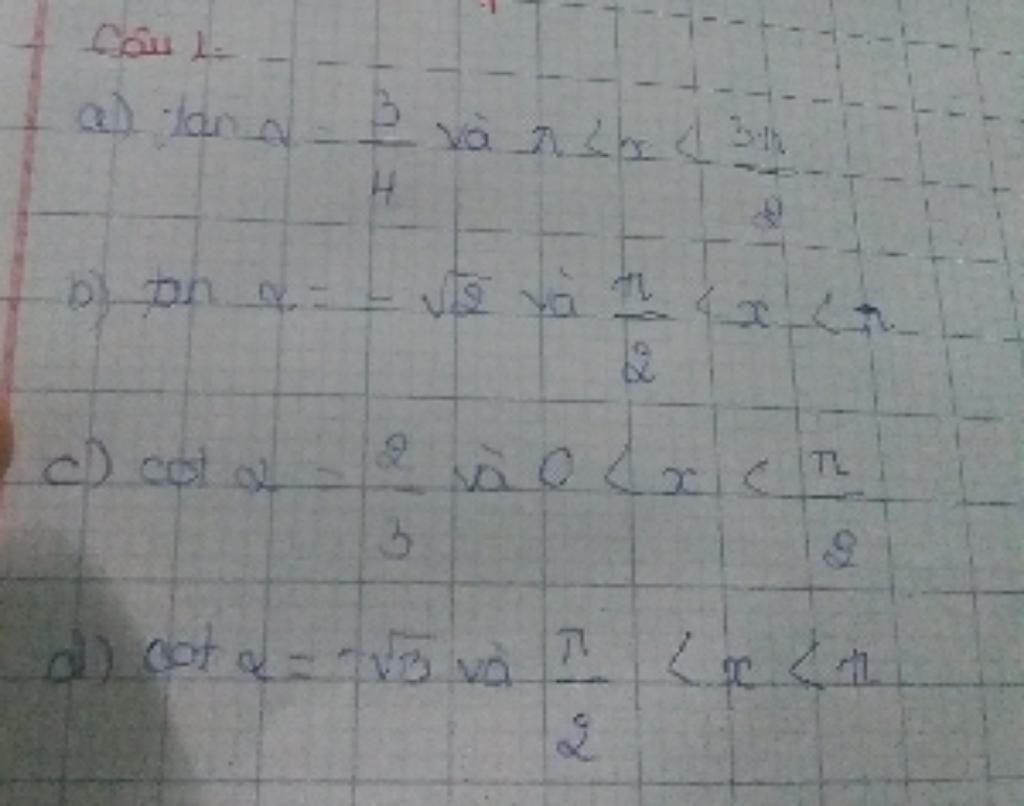 Câu 1.
a) tan α = 3/4 và π < x < 3π/2
b) tan α = - √2 và π/2 < x < π
c) cot α = 2/3 và 0 < x < π/2
d) cot α = -√3 và π/2 < x < π